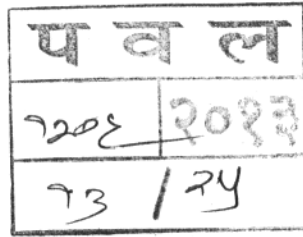 प व ल
१२०६ २०१३
१३ / २५